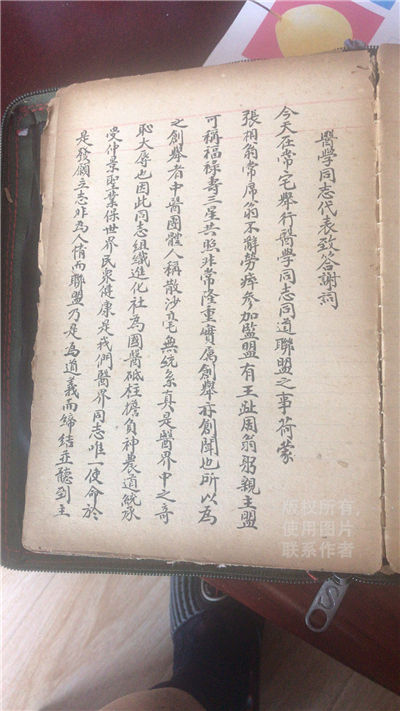 醫學同志代表致答謝詞
今天在常宅舉行醫學同志同道聯盟之事荷蒙
張相翁常席翁不辭勞瘁參加監盟有王趾周翁躬親主盟
可稱福祿壽三星共照非常隆重實属創舉亦創聞也所以為
之創舉者中醫團體人稱散沙毫無統系真是醫界中之奇
恥大辱也因此同志組織進化社為國醫砥柱擔負神農道統承
受仲景聖業保世界民衆健康是我們醫界同志唯一使命於
是發願立志非為人情而聯盟乃是為道義而締结並聽到主
版权所有,
使用图片
联系作者